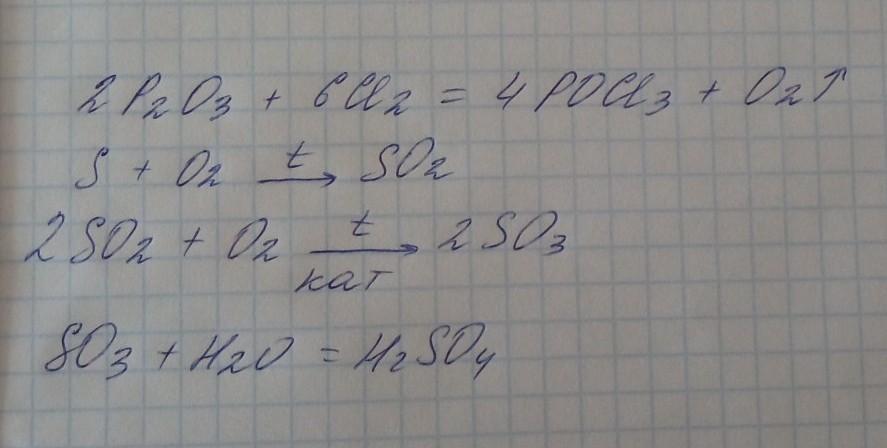 2P₂O₃ + 6Cl₂ = 4POCl₃ + O₂↑
S + O₂ →ᵗ SO₂
2SO₂ + O₂ →ᵗ 2SO₃
кат
SO₃ + H₂O = H₂SO₄